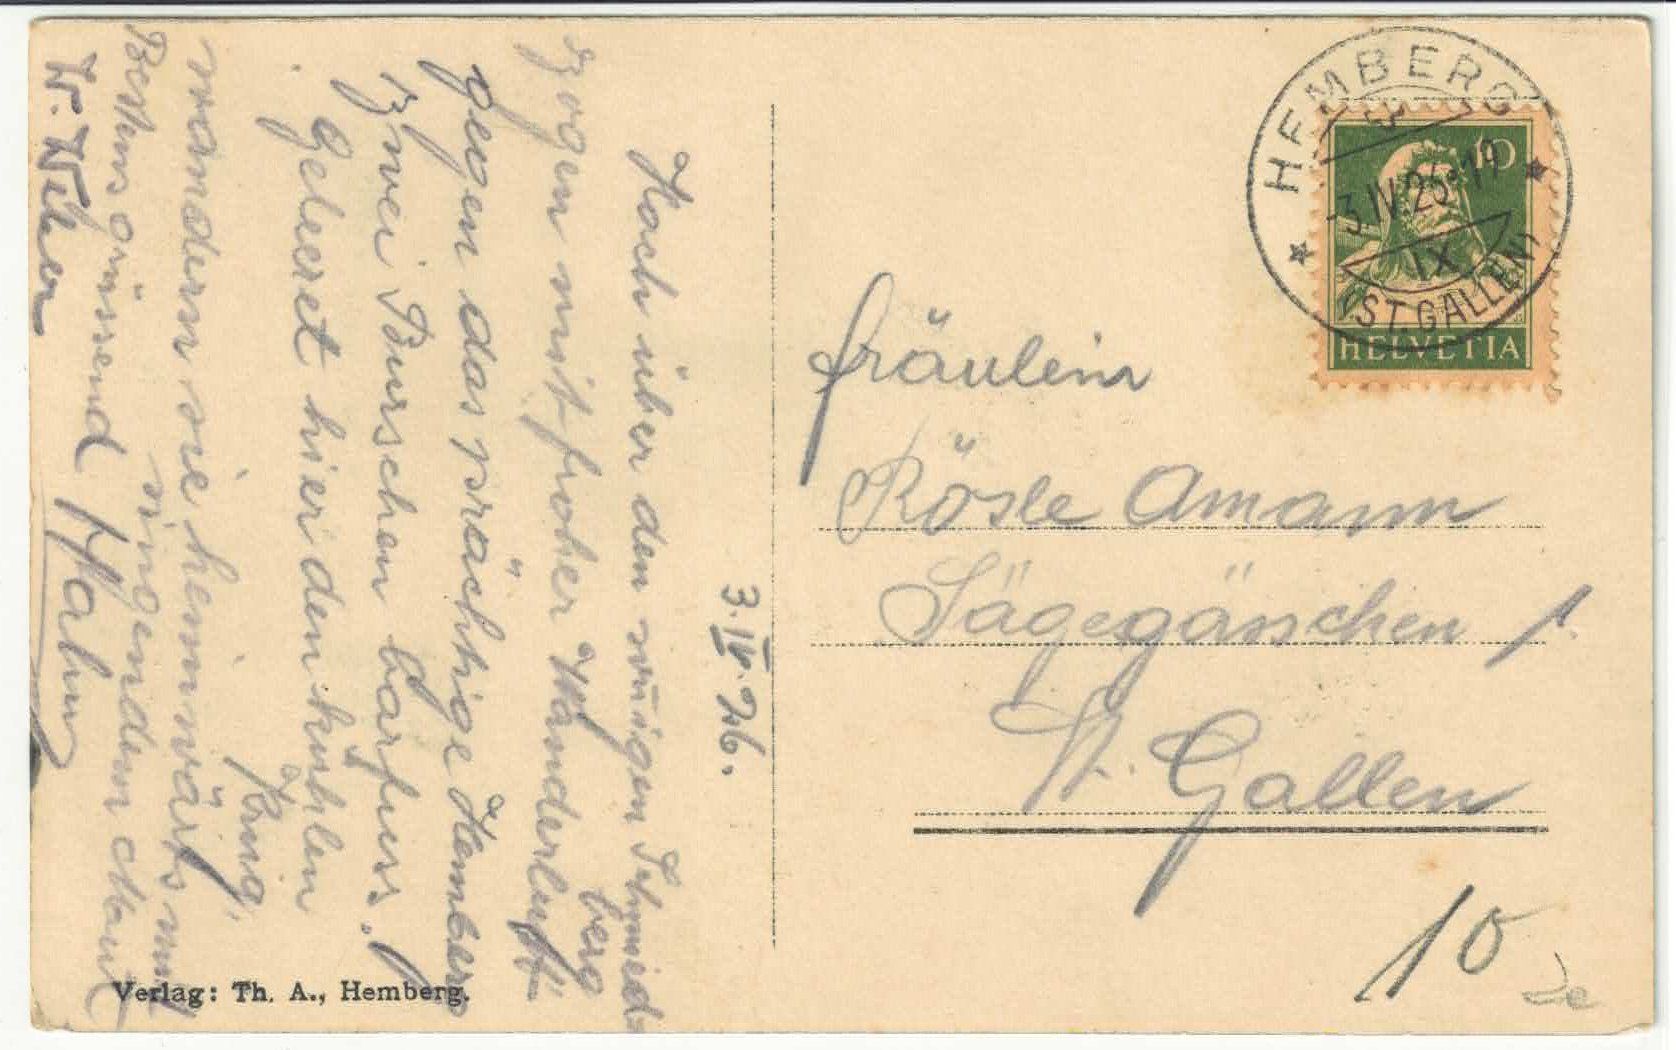 3. IV. 26.
Hoch über den ruigen Schmied
berg
zogen mit froher Wanderlust
gegen das prächtige Hemberg
Zwei Burschen barfuss.
Geleeret hier den kühlen
Krug,
wandern sie heimwärts nun
singendem Mund
Bestens grüssend
W. Weber
H. Hahn
Verlag: Th. A., Hemberg.
HEMBERG
3. IV. 26
IX
(ST. GALLEN)
10
HELVETIA
Fräulein
Rösle Amann
Sägegässchen 1.
St. Gallen
10